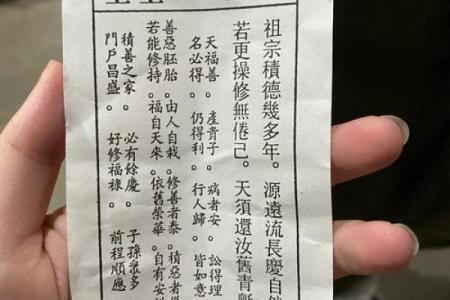 祖宗積德幾多年。源遠流長慶自
若更操修無倦己。天須還汝舊青
天福善。產貴子。病者安。訟得理
名必得。仍得利。行人歸。皆如意
善惡胚胎。由人自栽。修善者泰。積惡者
若能修持。福自天來。依舊榮華。自有安
積善之家。必有餘慶。子孫眾多
門戶昌盛。好修福祿。前程順應